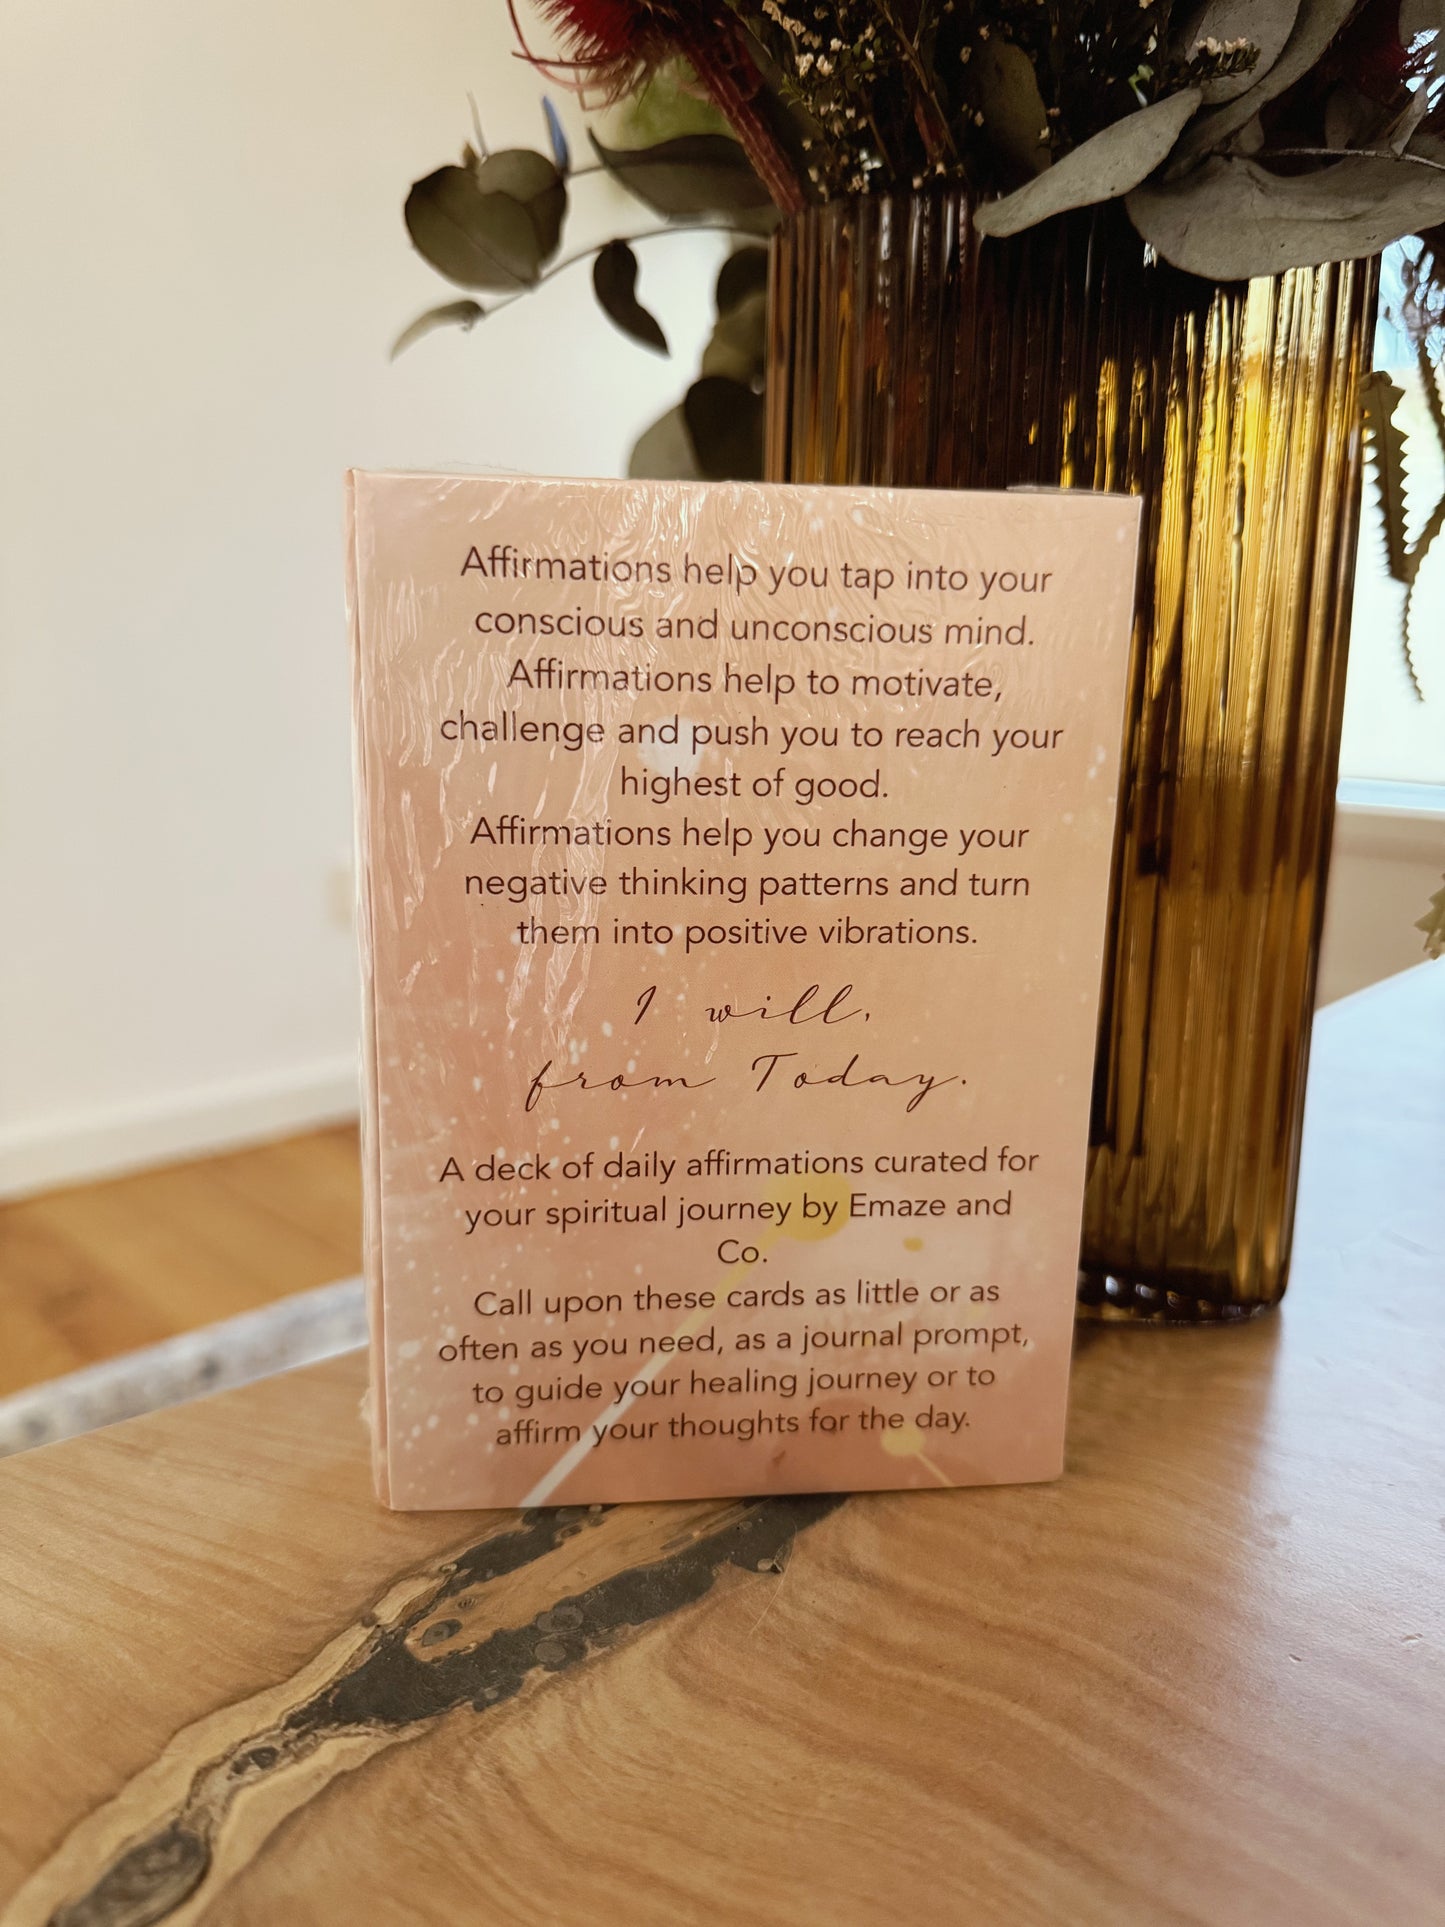 Affirmations help you tap into your
conscious and unconscious mind.
Affirmations help to motivate,
challenge and push you to reach your
highest of good.
Affirmations help you change your
negative thinking patterns and turn
them into positive vibrations.
I will,
from Today.
A deck of daily affirmations curated for
your spiritual journey by Emaze and
Co.
Call upon these cards as little or as
often as you need, as a journal prompt,
to guide your healing journey or to
affirm your thoughts for the day.